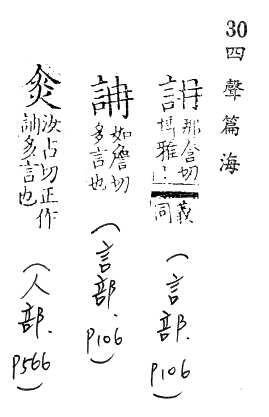 30 四聲篇海
那含切
博雅
義
同
(言部. P106)
䛁
如詹切
多言也
(言部. P106)
汝占切正作
䛁多言也
(人部. P566)